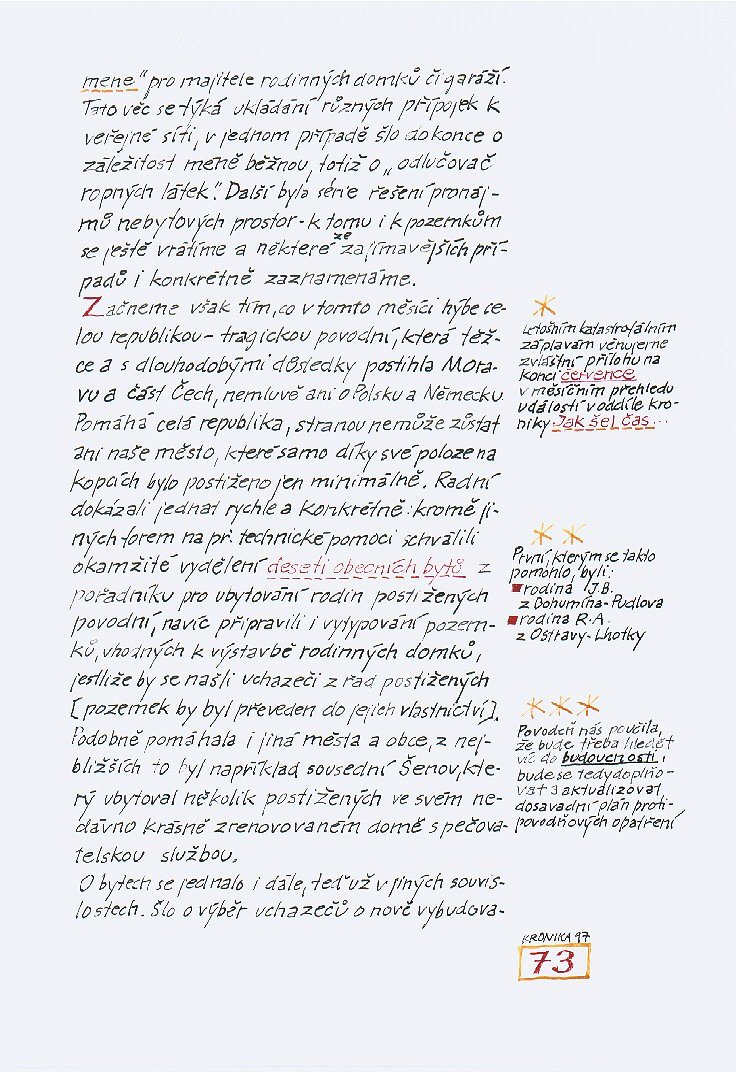 mene" pro majitele rodinných domků či garáží.
Tato věc se týká ukládání různých přípojek k
veřejné síti, v jednom případě šlo dokonce o
záležitost méně běžnou, totiž o „odlučovač
ropných látek". Další byla série řešení pronáj-
mů nebytových prostor - k tomu i k pozemkům
se ještě vrátíme a některé ze zajímavějších pří-
padů i konkrétně zaznamenáme.
Začneme však tím, co v tomto měsíci hýbe ce-
lou republikou - tragickou povodní, která těž-
ce a s dlouhodobými důsledky postihla Mora-
vu a část Čech, nemluvě ani o Polsku a Německu.
Pomáhá celá republika, stranou nemůže zůstat
ani naše město, které samo díky své poloze na
kopcích bylo postiženo jen minimálně. Radní
dokázali jednat rychle a konkrétně: kromě ji-
ných forem na př. technické pomoci schválili
okamžité vydělení deseti obecních bytů z
pořadníku pro ubytování rodin postižených
povodní, navíc připravili i vytypování pozem-
ků, vhodných k výstavbě rodinných domků,
jestliže by se našli uchazeči z řad postižených
[pozemek by byl převeden do jejich vlastnictví].
Podobně pomáhala i jiná města a obce, z nej-
bližších to byl například sousední Šenov, kte-
rý ubytoval několik postižených ve svém ne-
dávno krásně zrenovovaném domě s pečova-
telskou službou.
O bytech se jednalo i dále, teď už v jiných souvis-
lostech. Šlo o výběr uchazečů o nově vybudova-
*
Letošním katastrofálním
záplavám věnujeme
zvláštní přílohu na
konci července
v měsíčním přehledu
událostí v oddíle kro-
niky Jak šel čas...
* *
První, kterým se takto
pomohlo, byli:
rodina J.B.
z Bohumína-Pudlova
rodina R.A.
z Ostravy-Lhotky
* * *
Povodeň nás poučila,
že bude třeba hledět
víc do budoucnosti,
bude se tedy doplňo-
vat a aktualizovat
dosavadní plán proti-
povodňových opatření
KRONIKA 97
73